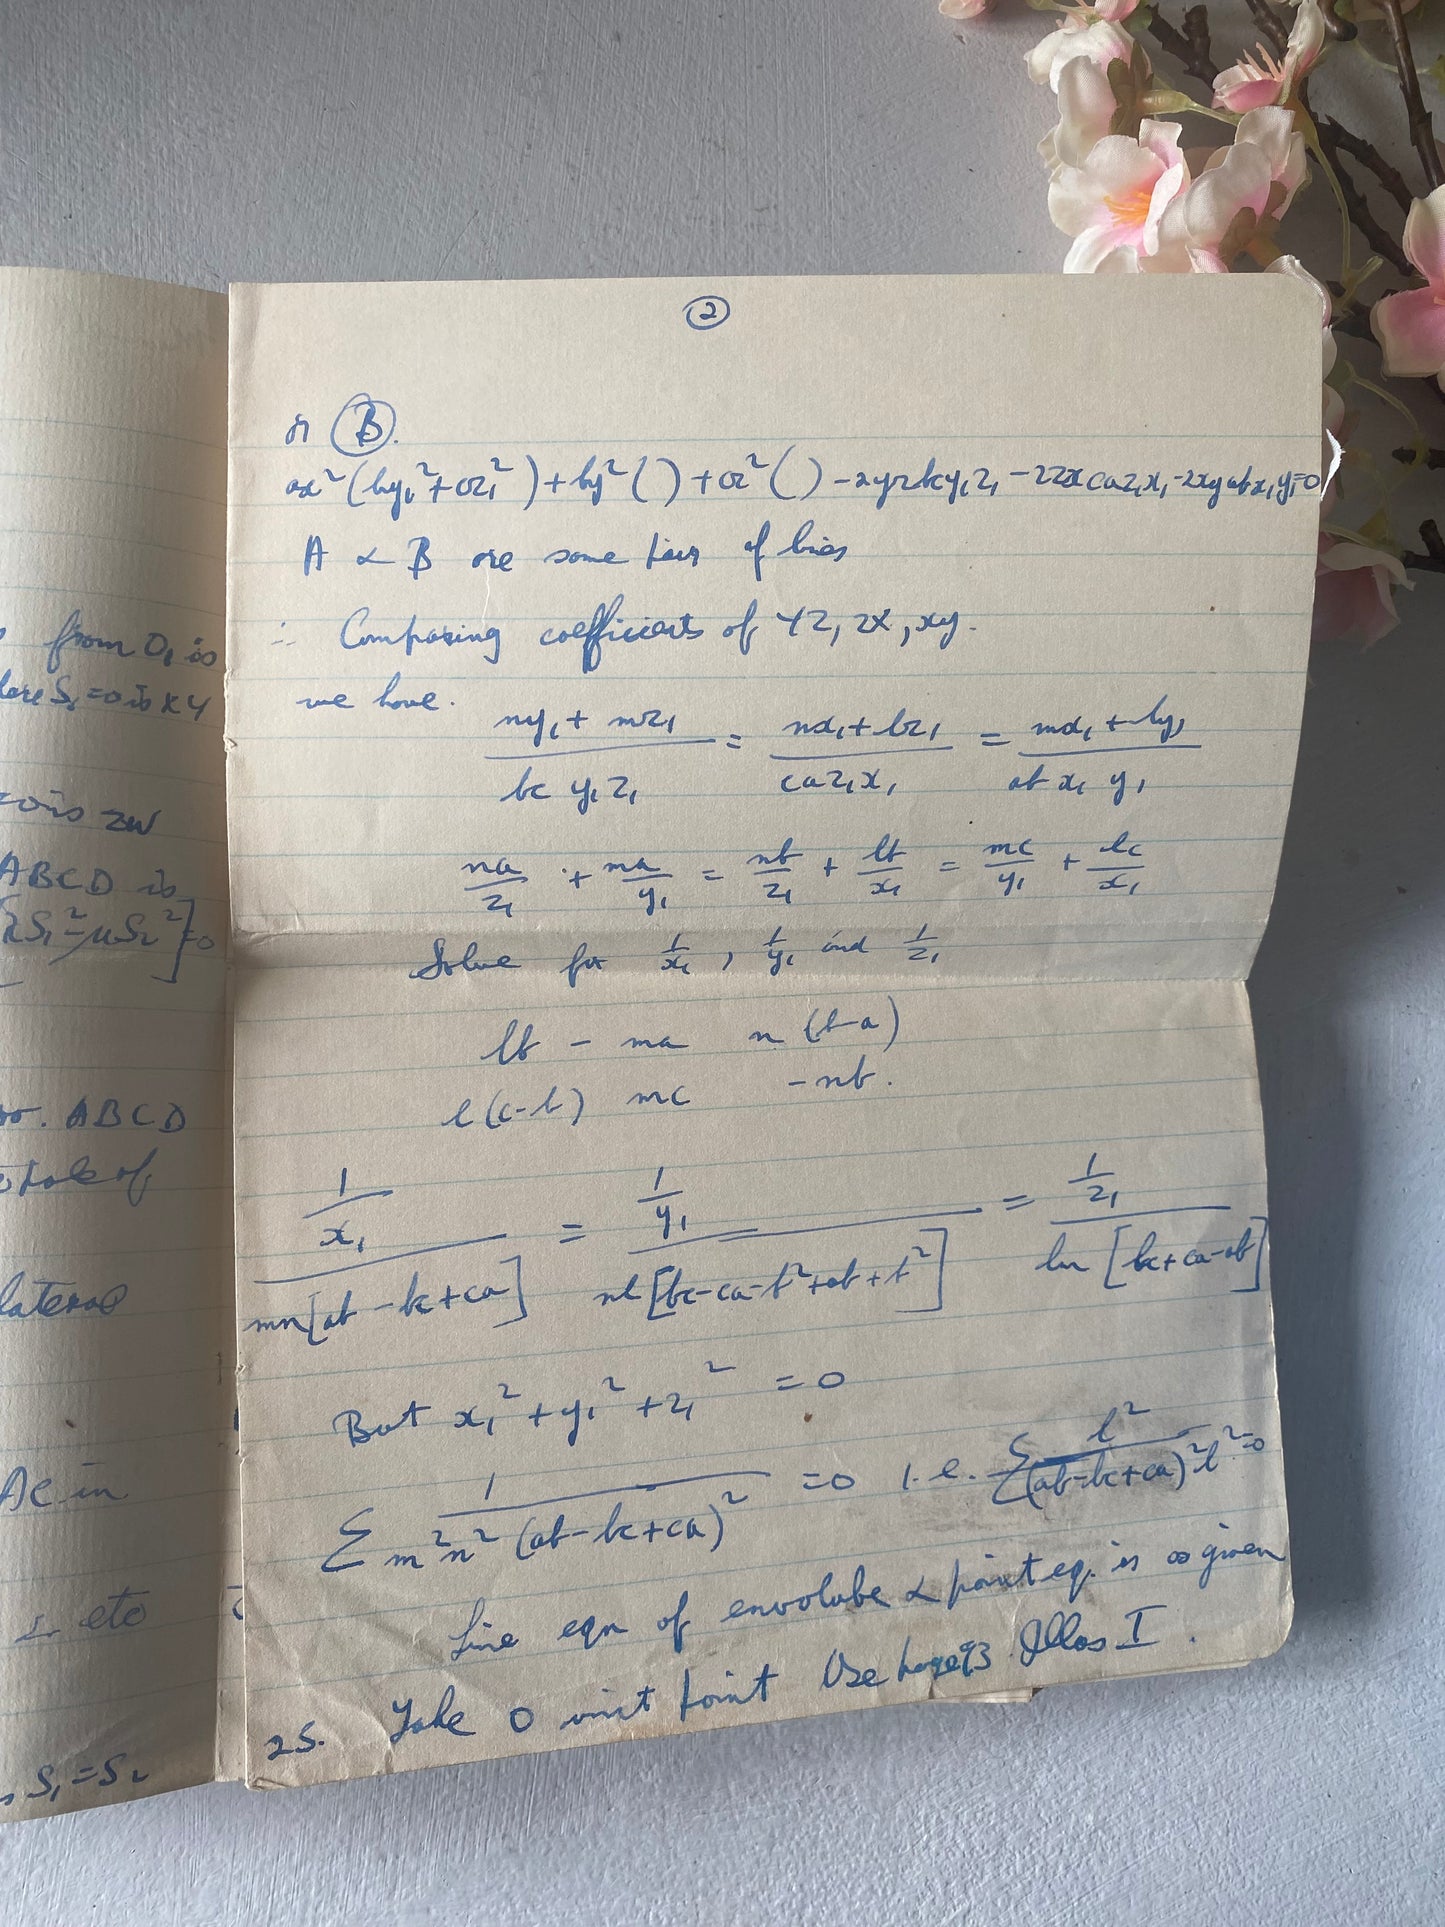 from O₁ is
S₁ = 0 is XY
ZW
ABCD is
λS₁² - μS₂²] = 0
ABCD
pole of
lateral
AC in
etc
S₁ = S₂
②
or Ⓑ.
ax² (by₁² + cz₁²) + by² ( ) + cz² ( ) - 2yz bc y₁z₁ - 2zx ca z₁x₁ - 2xy ab x₁y₁ = 0
A & B are same pair of lines
∴ Comparing coefficients of YZ, ZX, xy.
we have. (ny₁ + mz₁)/(bc y₁z₁) = (nx₁ + lz₁)/(ca z₁x₁) = (mx₁ + ly₁)/(ab x₁y₁)
na/z₁ + ma/y₁ = nb/z₁ + lb/x₁ = mc/y₁ + lc/x₁
Solve for 1/x₁, 1/y₁ and 1/z₁
lb - ma n(b-a)
l(c-b) mc -nb.
(1/x₁)/(mn[ab - bc + ca]) = (1/y₁)/(nl[bc - ca - b² + ab + b²]) = (1/z₁)/(lm[bc + ca - ab])
But x₁² + y₁² + z₁² = 0
Σ 1/(m²n²(ab - bc + ca)²) = 0 i.e. Σ l²/(ab - bc + ca)² l² = 0
line eqn of envolube & point eq. is as given
25. Take O unit point Use page 93 Illos I.